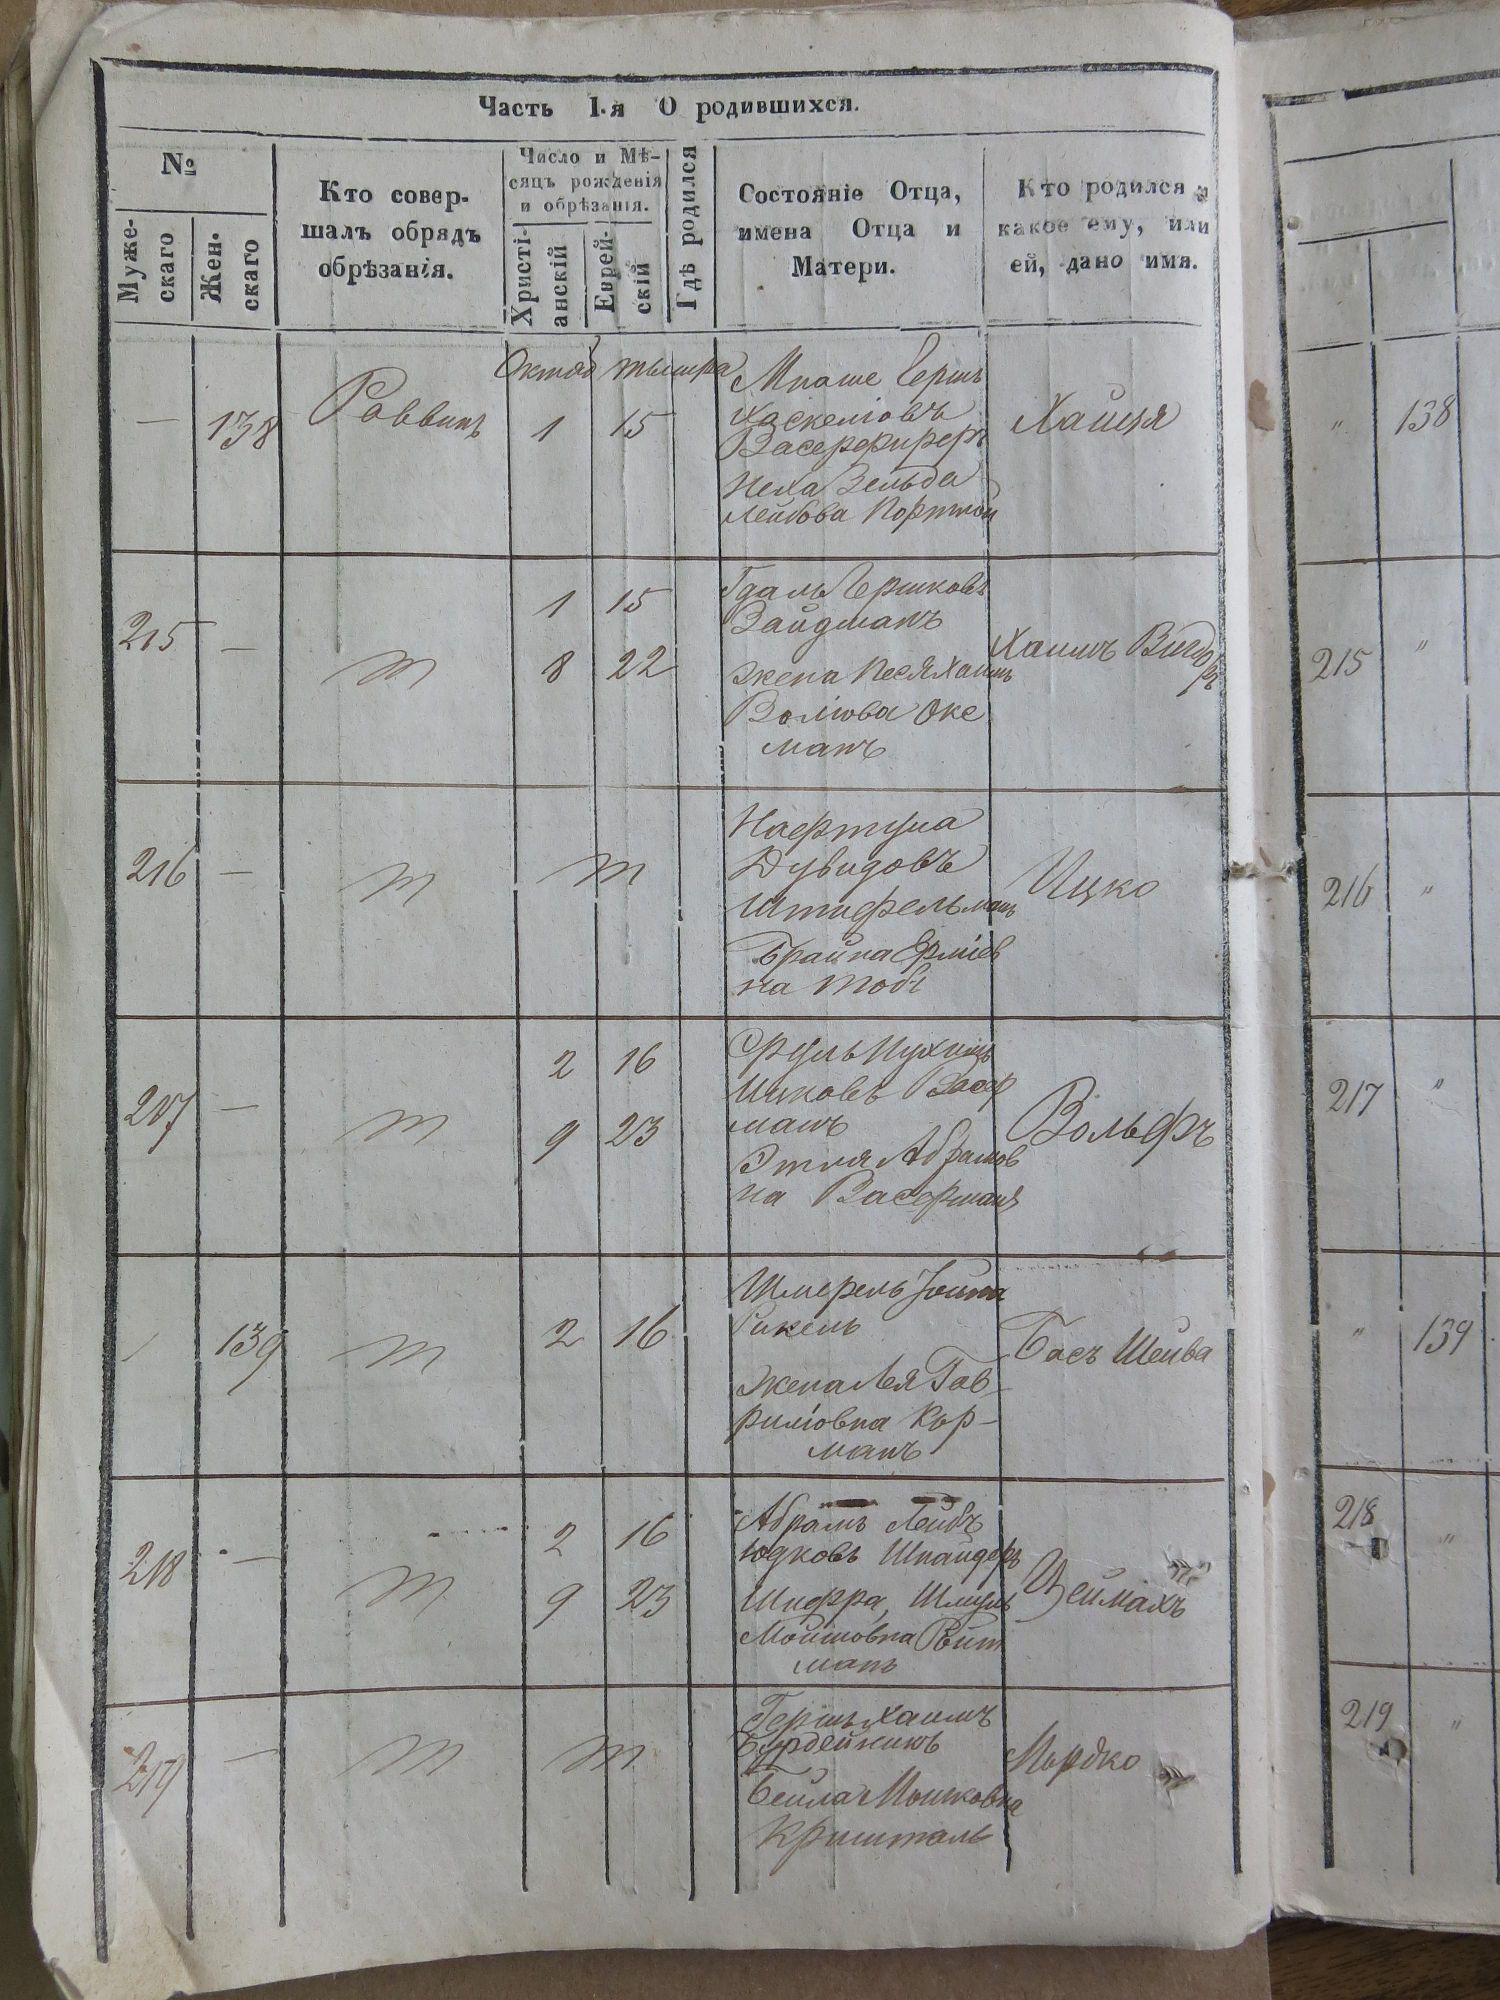 Часть I-я О родившихся.
№
Муже-
скаго
Жен-
скаго
Кто совер-
шалъ обрядъ
обрѣзанія.
Число и Мѣ-
сяцъ рожденія
и обрѣзанія.
Христі-
анскій
Еврей-
скій
Гдѣ родился
Состояніе Отца,
имена Отца и
Матери.
Кто родился и
какое ему, или
ей, дано имя.
Октяб тышра
— 138 Раввинъ 1 15
Мнаше Гершъ
Хаскелiовъ
Васерфиреръ
Неха Зельда
Лейбова Портной
Хайця
215 — т
1 15
8 22
Гдаль Гершковъ
Зайдманъ
жена Песя Хаимъ
Волiова Окс
манъ
Хаимъ Вигдоръ
216 — т т
Нафтула
Дувидовъ
Штифельманъ
Брайна
на
Ицко
217 — т
2 16
9 23
Сруль
Ицковъ Васер
манъ
Этля Абрамов
на Васерманъ
Вольфъ
139 т 2 16
Шмерель
жена Лея Гав-
рилiовна Кор-
манъ
Бася Шейва
218 — т
2 16
9 23
Абрамъ Лейбъ
Юдковъ Шнайдеръ
Шифра, Шмуль
Мошковна Ройт
манъ
Цеймахъ
219 — т т
Гершъ Хаимъ
Бурдейникъ
Бейла Мошковна
Кришталь
Мордко
" 138
215 "
216 "
217 "
" 139
218 "
219 "